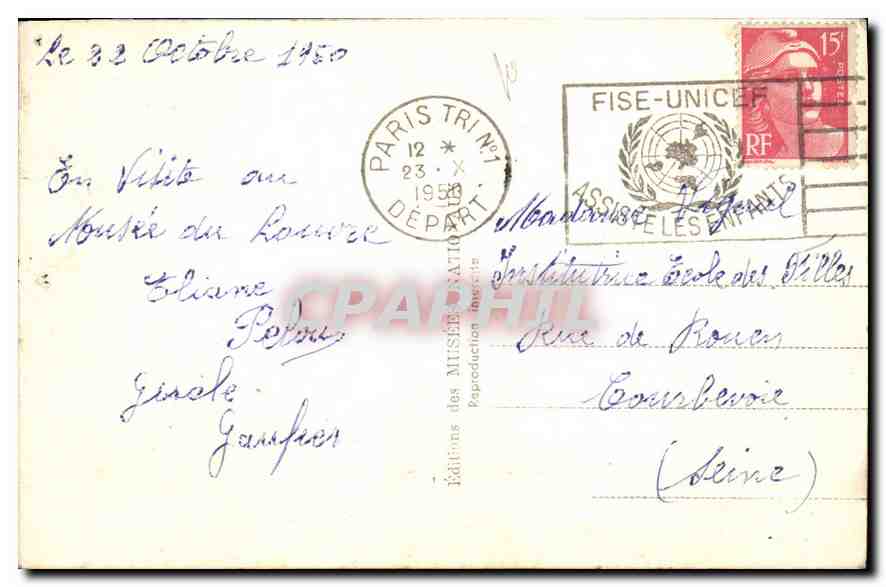 Le 22 Octobre 1950
En Visite au
Musée du Louvre
Eliane
Gisèle
PARIS TRI N°1
12 *
23 · X
1950
DÉPART
FISE-UNICEF
ASSISTE LES ENFANTS
15F
POSTES
RF
Éditions des MUSÉES NATIONAUX
Reproduction interdite
CPAPHIL
Institutrice Ecole des Filles
Rue de Rouen
Courbevoie
(Seine)